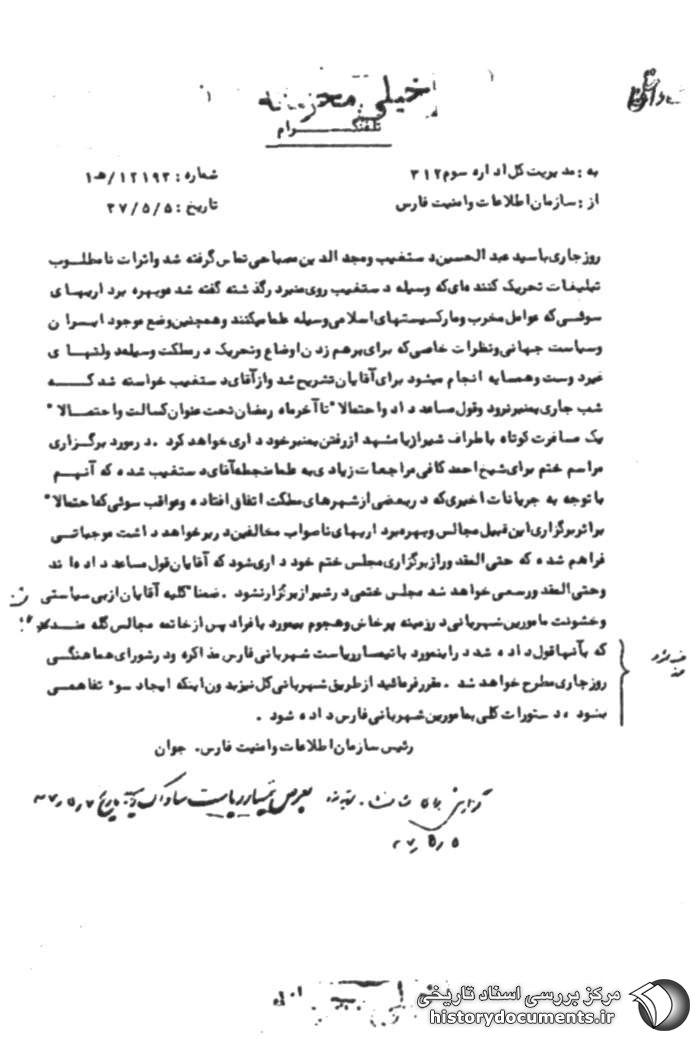 خیلی محرمانه
تلفنگرام
به : مدیریت کل اداره سوم ۳۱۲
شماره : ۱۲۱۹۳/هـ۱
از : سازمان اطلاعات و امنیت فارس
تاریخ : ۳۷/۵/۵
روز جاری با سید عبدالحسین دستغیب و مجدالدین مصباحی تماس گرفته شد و اثرات نامطلوب
تبلیغات تحریک کننده‌ای که وسیله دستغیب روی منبر در گذشته گفته شده و بهره برداریهای
سوئی که عوامل مخرب و مارکسیستهای اسلامی وسیله علما میکنند و همچنین وضع موجود ایران
و سیاست جهانی و نظرات خاصی که برای برهم زدن اوضاع و تحریک در مملکت وسیله دولتهای
غیر دوست و همسایه انجام میشود برای آقایان تشریح شد و از آقای دستغیب خواسته شد که
شب جاری بمنبر نرود و قول مساعد داد و احتمالا" تا آخر ماه رمضان تحت عنوان کسالت و احتمالا"
یک مسافرت کوتاه باطراف شیراز یا مشهد از رفتن بمنبر خودداری خواهد کرد . در مورد برگزاری
مراسم ختم برای شیخ احمد کافی مراجعات زیادی به علما منجمله آقای دستغیب شده که آنهم
با توجه به جریانات اخیری که در بعضی از شهرهای مملکت اتفاق افتاده و عواقب سوئی که احتمالا"
بر اثر برگزاری این قبیل مجالس و بهره برداریهای ناصواب مخالفین در بر خواهد داشت موجباتی
فراهم شده که حتی المقدور از برگزاری مجلس ختم خودداری شود که آقایان قول مساعد داده اند
و حتی المقدور سعی خواهد شد مجلس ختمی در شیراز برگزار نشود . ضمنا" کلیه آقایان از بی سیاستی
و خشونت مامورین شهربانی در زمینه پرخاش و هجوم بیمورد بافراد پس از خاتمه مجالس گله مند
که بآنها قول داده شد در اینمورد با تیمسار ریاست شهربانی فارس مذاکره و در شورای هماهنگی
روز جاری مطرح خواهد شد . مقرر فرمائید از طریق شهربانی کل نیز بدون اینکه ایجاد سوء تفاهمی
بنمود ، دستورات کلی بمامورین شهربانی فارس داده شود .
رئیس سازمان اطلاعات و امنیت فارس. جوان
بعرض تیمسار ریاست ساواک تاریخ ۳۷٫۵٫۷
۳۷٫۵٫۵
مرکز بررسی اسناد تاریخی
historydocuments.ir